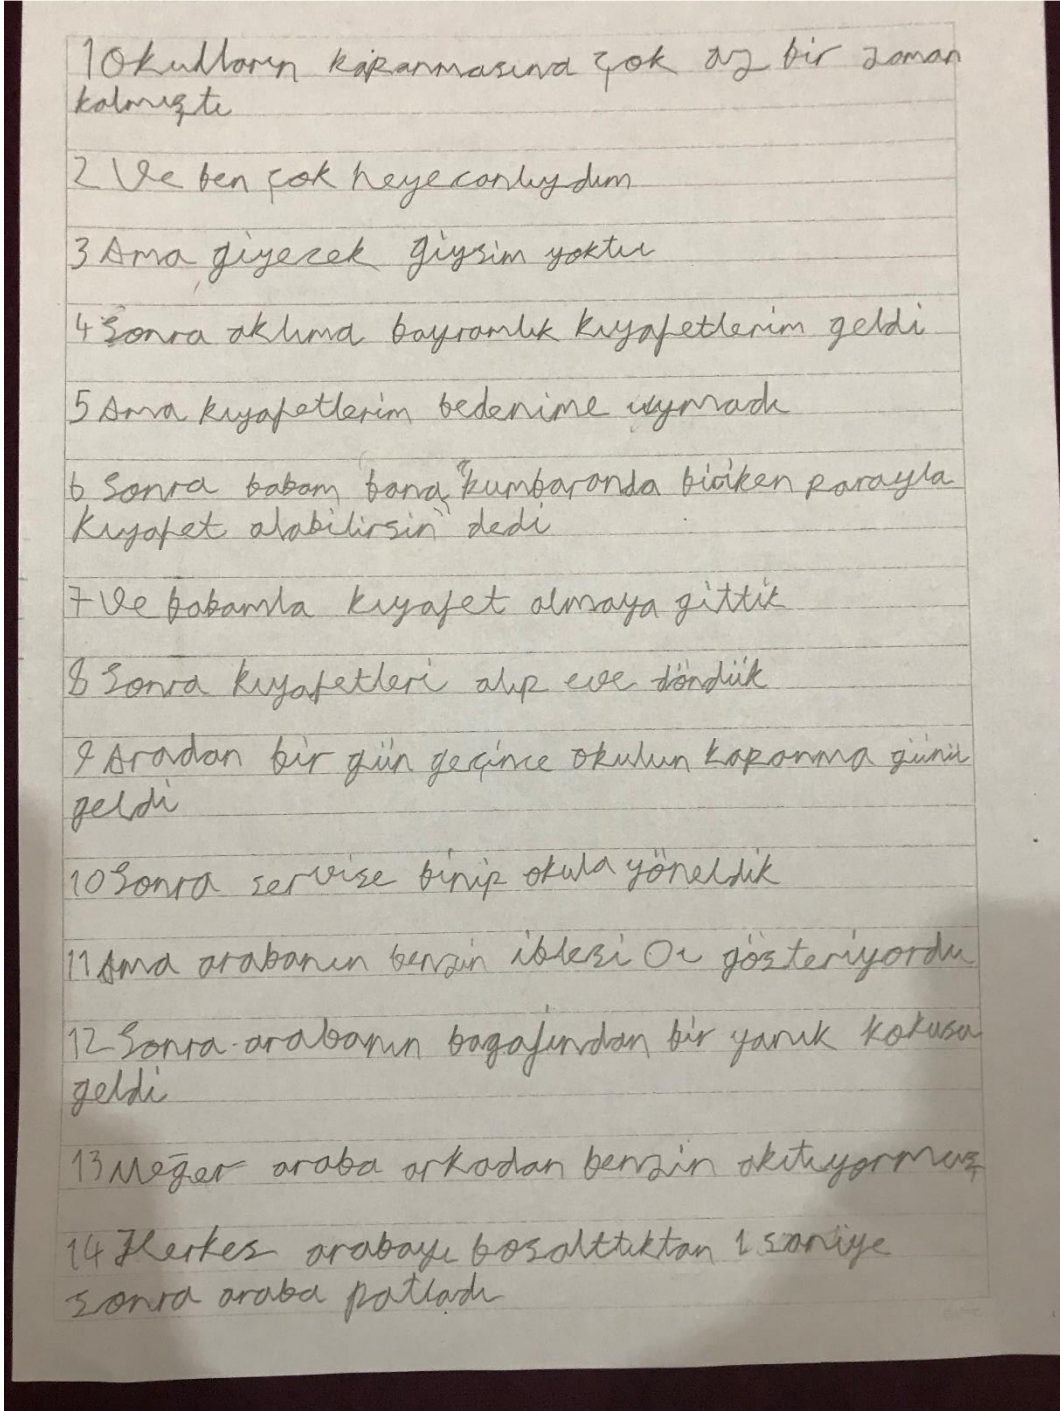 1 Okulların kapanmasına çok az bir zaman
kalmıştı
2 Ve ben çok heyecanlıydım
3 Ama giyecek giysim yoktu
4 Sonra aklıma bayramlık kıyafetlerim geldi
5 Ama kıyafetlerim bedenime uymadı
6 Sonra babam bana "kumbaranda biriken parayla
kıyafet alabilirsin" dedi
7 Ve babamla kıyafet almaya gittik
8 Sonra kıyafetleri alıp eve döndük
9 Aradan bir gün geçince okulun kapanma günü
geldi
10 Sonra servise binip okula yöneldik
11 Ama arabanın benzin iblesi 0ı gösteriyordu
12 Sonra arabanın bagajından bir yanık kokusu
geldi
13 Meğer araba arkadan benzin akıtıyormuş
14 Herkes arabayı bosalttıktan 1 saniye
sonra araba patladı